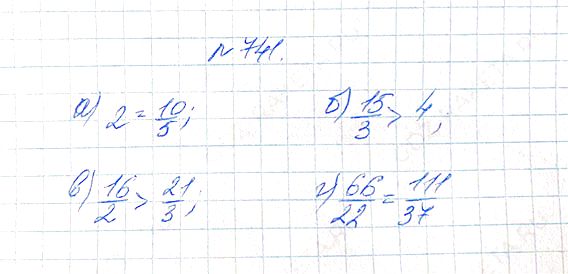 № 741.
а) 2 = 10/5; б) 15/3 > 4;
в) 16/2 > 21/3; г) 66/22 = 111/37